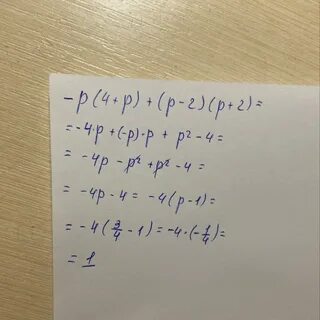 -p(4+p)+(p-2)(p+2)=
=-4·p+(-p)·p + p²-4=
= -4p - p² + p² - 4 =
= -4p-4 = -4(p-1)=
= -4(3/4 - 1) = -4·(-1/4)=
= 1